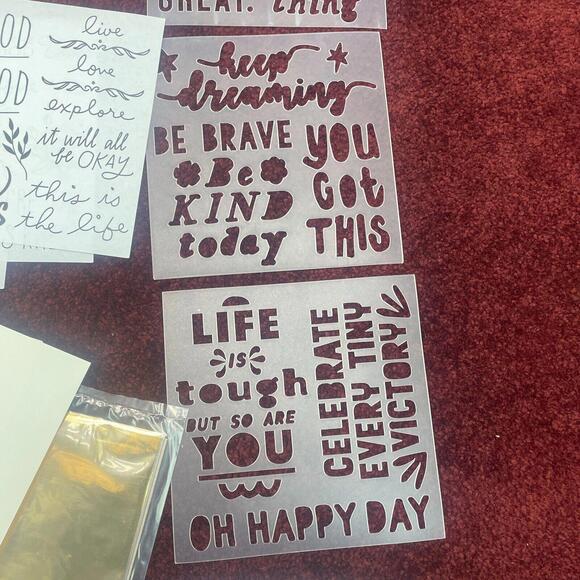 GREAT. thing
OD
OD
S
live
love
explore
it will all
be OKAY
this is
the life
keep
dreaming
BE BRAVE
Be
KIND
today
YOU
GOT
THIS
LIFE
IS
tough
BUT SO ARE
YOU
CELEBRATE
EVERY TINY
VICTORY
OH HAPPY DAY